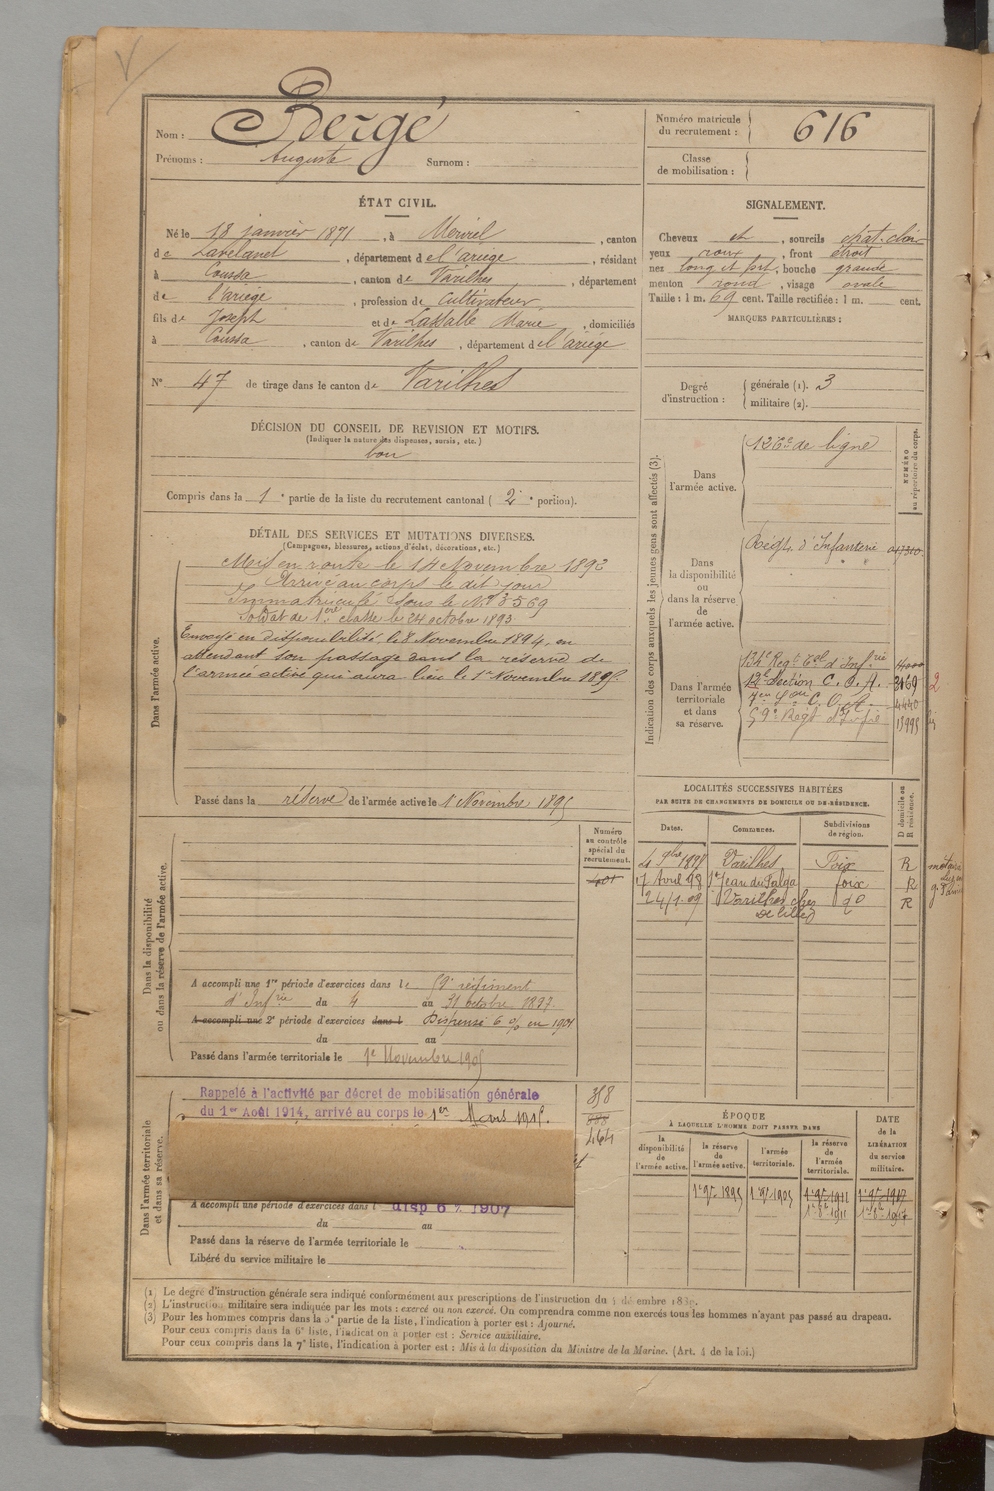 Nom : Bergé
Prénoms : Auguste Surnom :
Numéro matricule du recrutement : 616
Classe de mobilisation :
ÉTAT CIVIL.
Né le 18 janvier 1871, à Merviel, canton
de Lavelanet, département de l'ariège, résidant
à Coussa, canton de Varilhes, département
de l'ariège, profession de Cultivateur
fils de Joseph et de Lassalle Marie, domiciliés
à Coussa, canton de Varilhes, département de l'ariège
N° 47 de tirage dans le canton de Varilhes
SIGNALEMENT.
Cheveux et, sourcils chat. clair
yeux roux, front étroit
nez long et fort, bouche grande
menton rond, visage ovale
Taille : 1 m. 69 cent. Taille rectifiée : 1 m. cent.
MARQUES PARTICULIÈRES :
Degré d'instruction : générale (1). 3
militaire (2).
DÉCISION DU CONSEIL DE REVISION ET MOTIFS.
(Indiquer la nature des dispenses, sursis, etc.)
bon
Compris dans la 1e partie de la liste du recrutement cantonal (2e portion).
DÉTAIL DES SERVICES ET MUTATIONS DIVERSES.
(Campagnes, blessures, actions d'éclat, décorations, etc.)
Dans l'armée active.
Mis en route le 14 Novembre 1892
Arrivé au corps le dit jour
Immatriculé sous le N° 3569
Soldat de 1ère classe le 24 octobre 1893.
Envoyé en disponibilité le 8 Novembre 1894, en
attendant son passage dans la réserve de
l'armée active qui aura lieu le 1er Novembre 1895.
Passé dans la réserve de l'armée active le 1 Novembre 1895
Indication des corps auxquels les jeunes gens sont affectés (3).
NUMÉRO au répertoire du corps.
Dans l'armée active.
126e de ligne
Dans la disponibilité ou dans la réserve de l'armée active.
Régt. d'Infanterie
Dans l'armée territoriale et dans sa réserve.
134e Regt Tal d'Infrie
12e Section C. O. A. 3169 2
7em Son C. O. A. 4440
59e Regt d'Infie 13995 bis
LOCALITÉS SUCCESSIVES HABITÉES
PAR SUITE DE CHANGEMENTS DE DOMICILE OU DE RÉSIDENCE.
Dates. Communes. Subdivisions de région. D domicile ou R résidence.
Varilhes Foix R
17 Avril 98 St Jean du Falga foix R
24/1-99 Varilhes chez de Lilled do R
Dans la disponibilité ou dans la réserve de l'armée active.
Numéro au contrôle spécial du recrutement.
A accompli une 1re période d'exercices dans le 59e régiment
d'Infrie du 4 au 31 octobre 1897.
A accompli une 2e période d'exercices dans l Dispensé 6 % en 1901
du au
Passé dans l'armée territoriale le 1e Novembre 1905
Dans l'armée territoriale et dans sa réserve.
Rappelé à l'activité par décret de mobilisation générale
du 1er Août 1914, arrivé au corps le 1er Mars 1915.
358
464
A accompli une période d'exercices dans l disp 6 % 1907
du au
Passé dans la réserve de l'armée territoriale le
Libéré du service militaire le
ÉPOQUE
À LAQUELLE L'HOMME DOIT PASSER DANS
la disponibilité de l'armée active. la réserve de l'armée active. l'armée territoriale. la réserve de l'armée territoriale.
DATE de la LIBÉRATION du service militaire.
1e 9bre 1895 1e 9bre 1905 1e 9bre 1911 1e 9bre 1917
1e 8e 1911 1e 8e 1917
(1) Le degré d'instruction générale sera indiqué conformément aux prescriptions de l'instruction du
(2) L'instruction militaire sera indiquée par les mots : exercé ou non exercé. On comprendra comme non exercés tous les hommes n'ayant pas passé au drapeau.
(3) Pour les hommes compris dans la 5e partie de la liste, l'indication à porter est : Ajourné.
Pour ceux compris dans la 6e liste, l'indication à porter est : Service auxiliaire.
Pour ceux compris dans la 7e liste, l'indication à porter est : Mis à la disposition du Ministre de la Marine. (Art. 4 de la loi.)